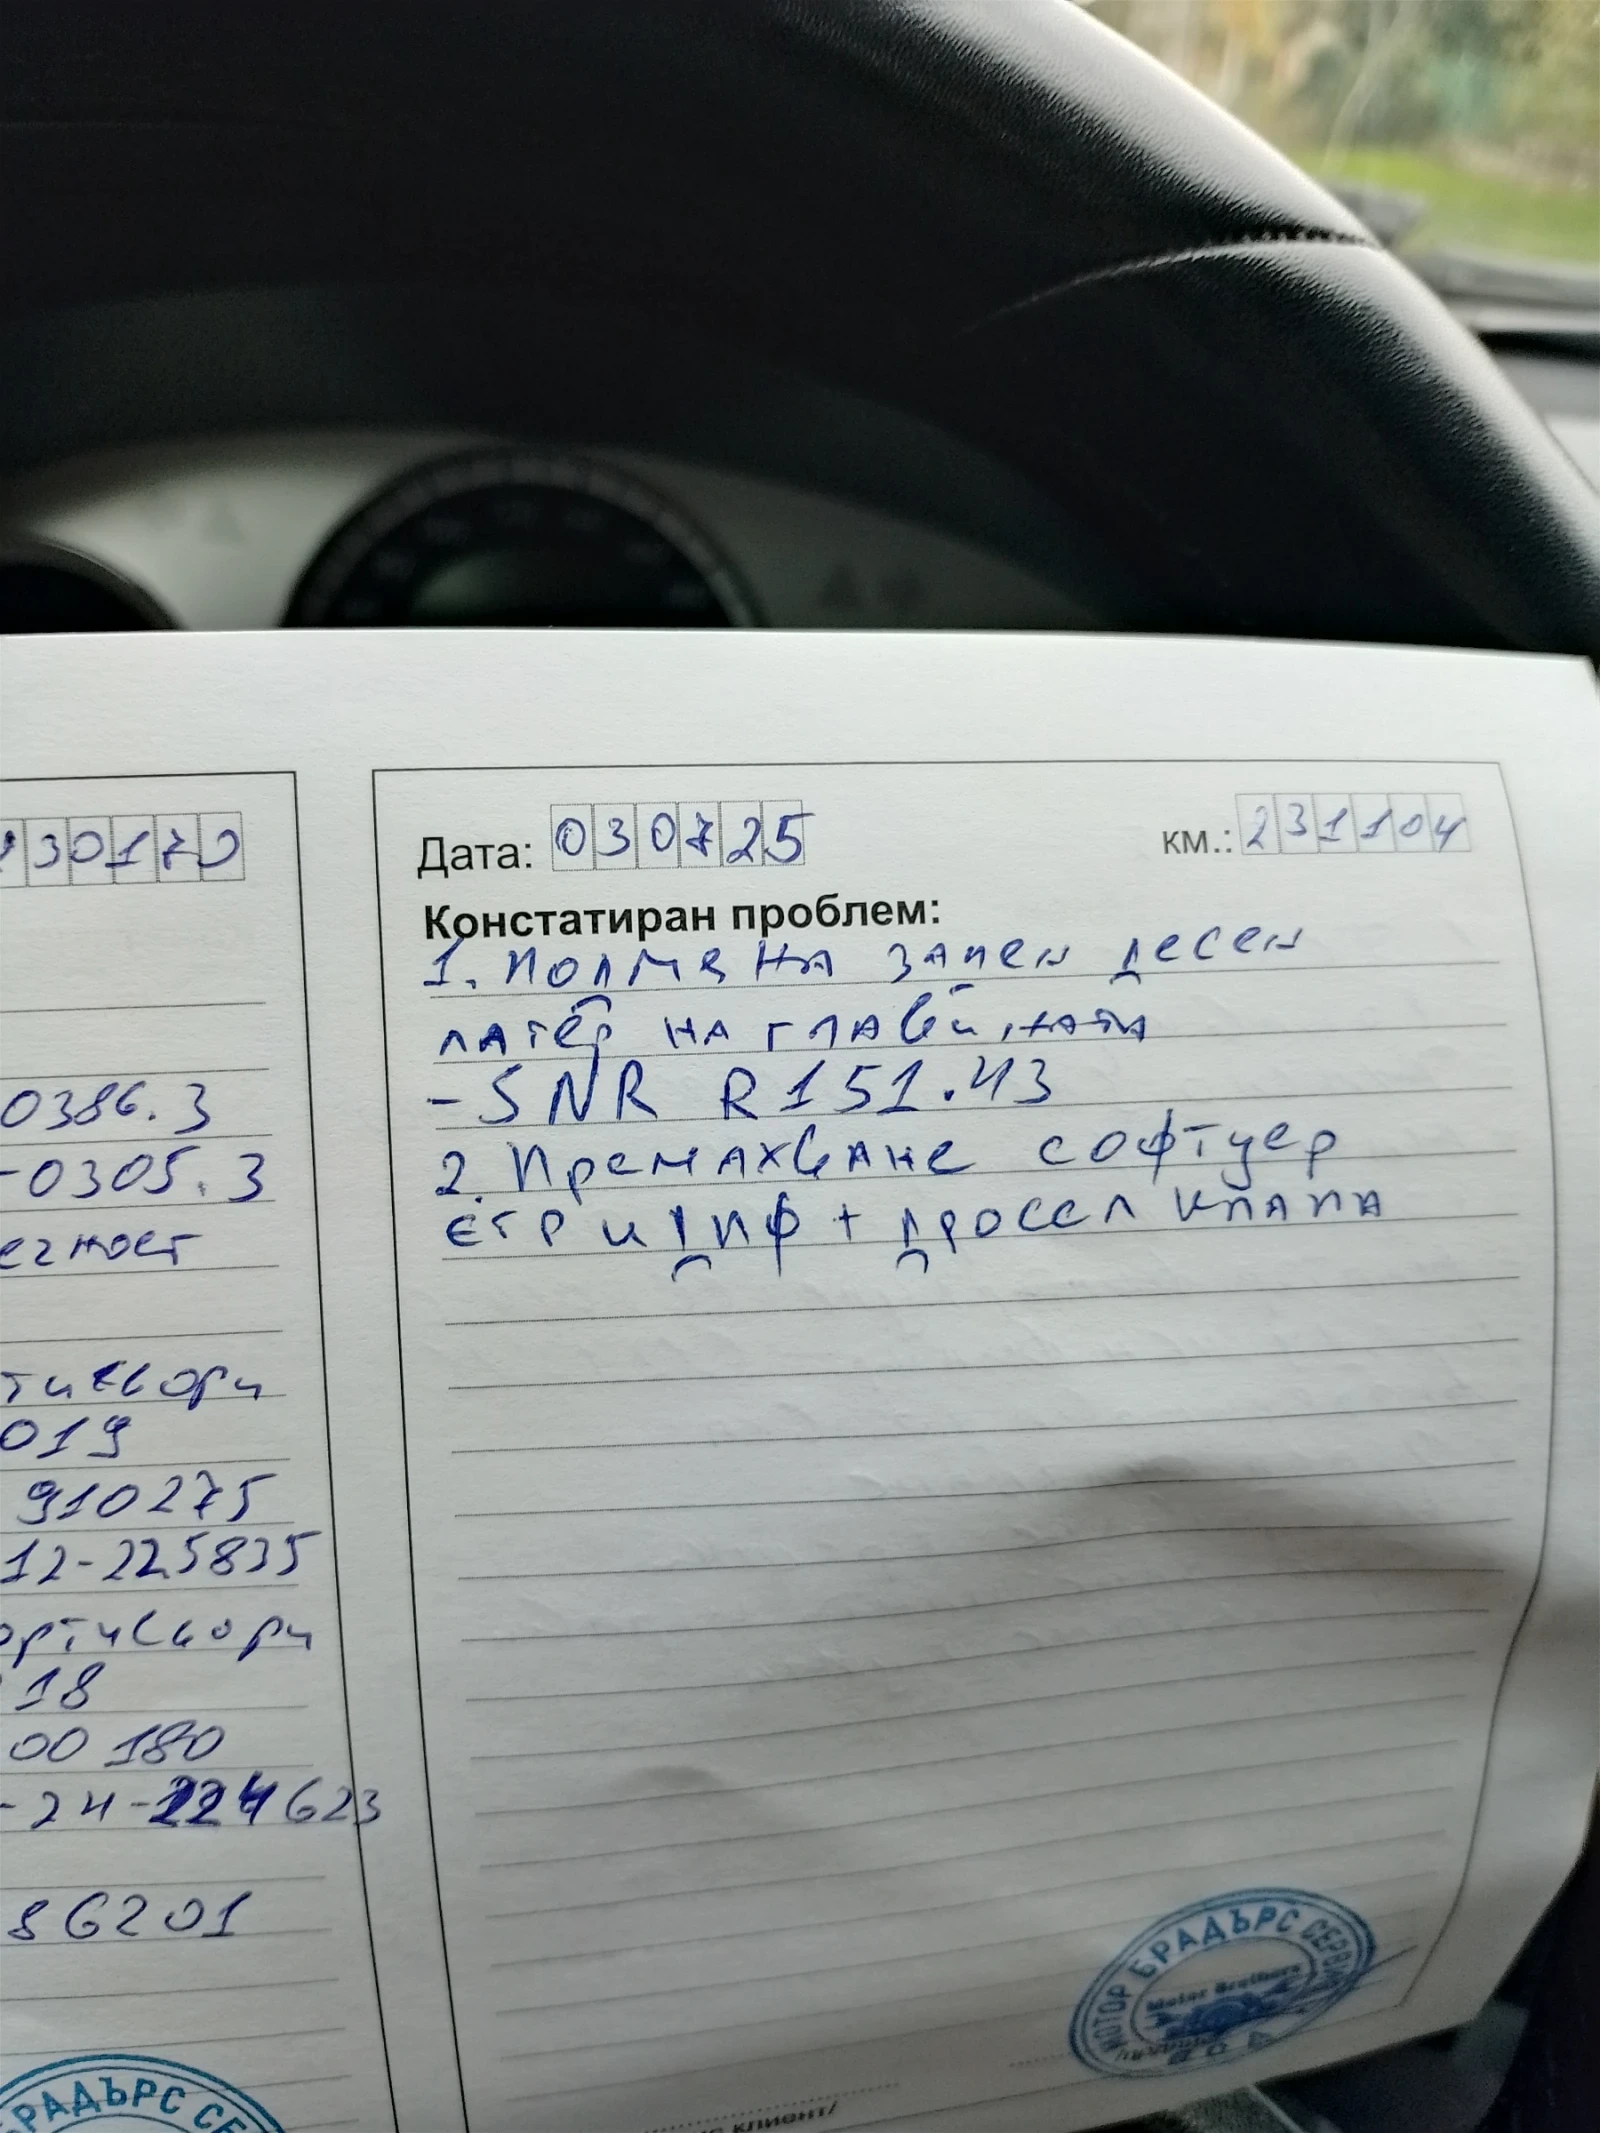 30170
0386.3
-0305.3
019
910275
12-225835
18
00 180
-24-224623
86201
БРАДЪРС СЕ
Дата: 030725 км.: 231104
Констатиран проблем:
1. Подмяна заден десен
лагер на главината
- SNR R151.43
2. Премахване софтуер
ЕГР и ДПФ + дросел клапа
МОТОР БРАДЪРС СЕРВИЗ
Motor Brothers